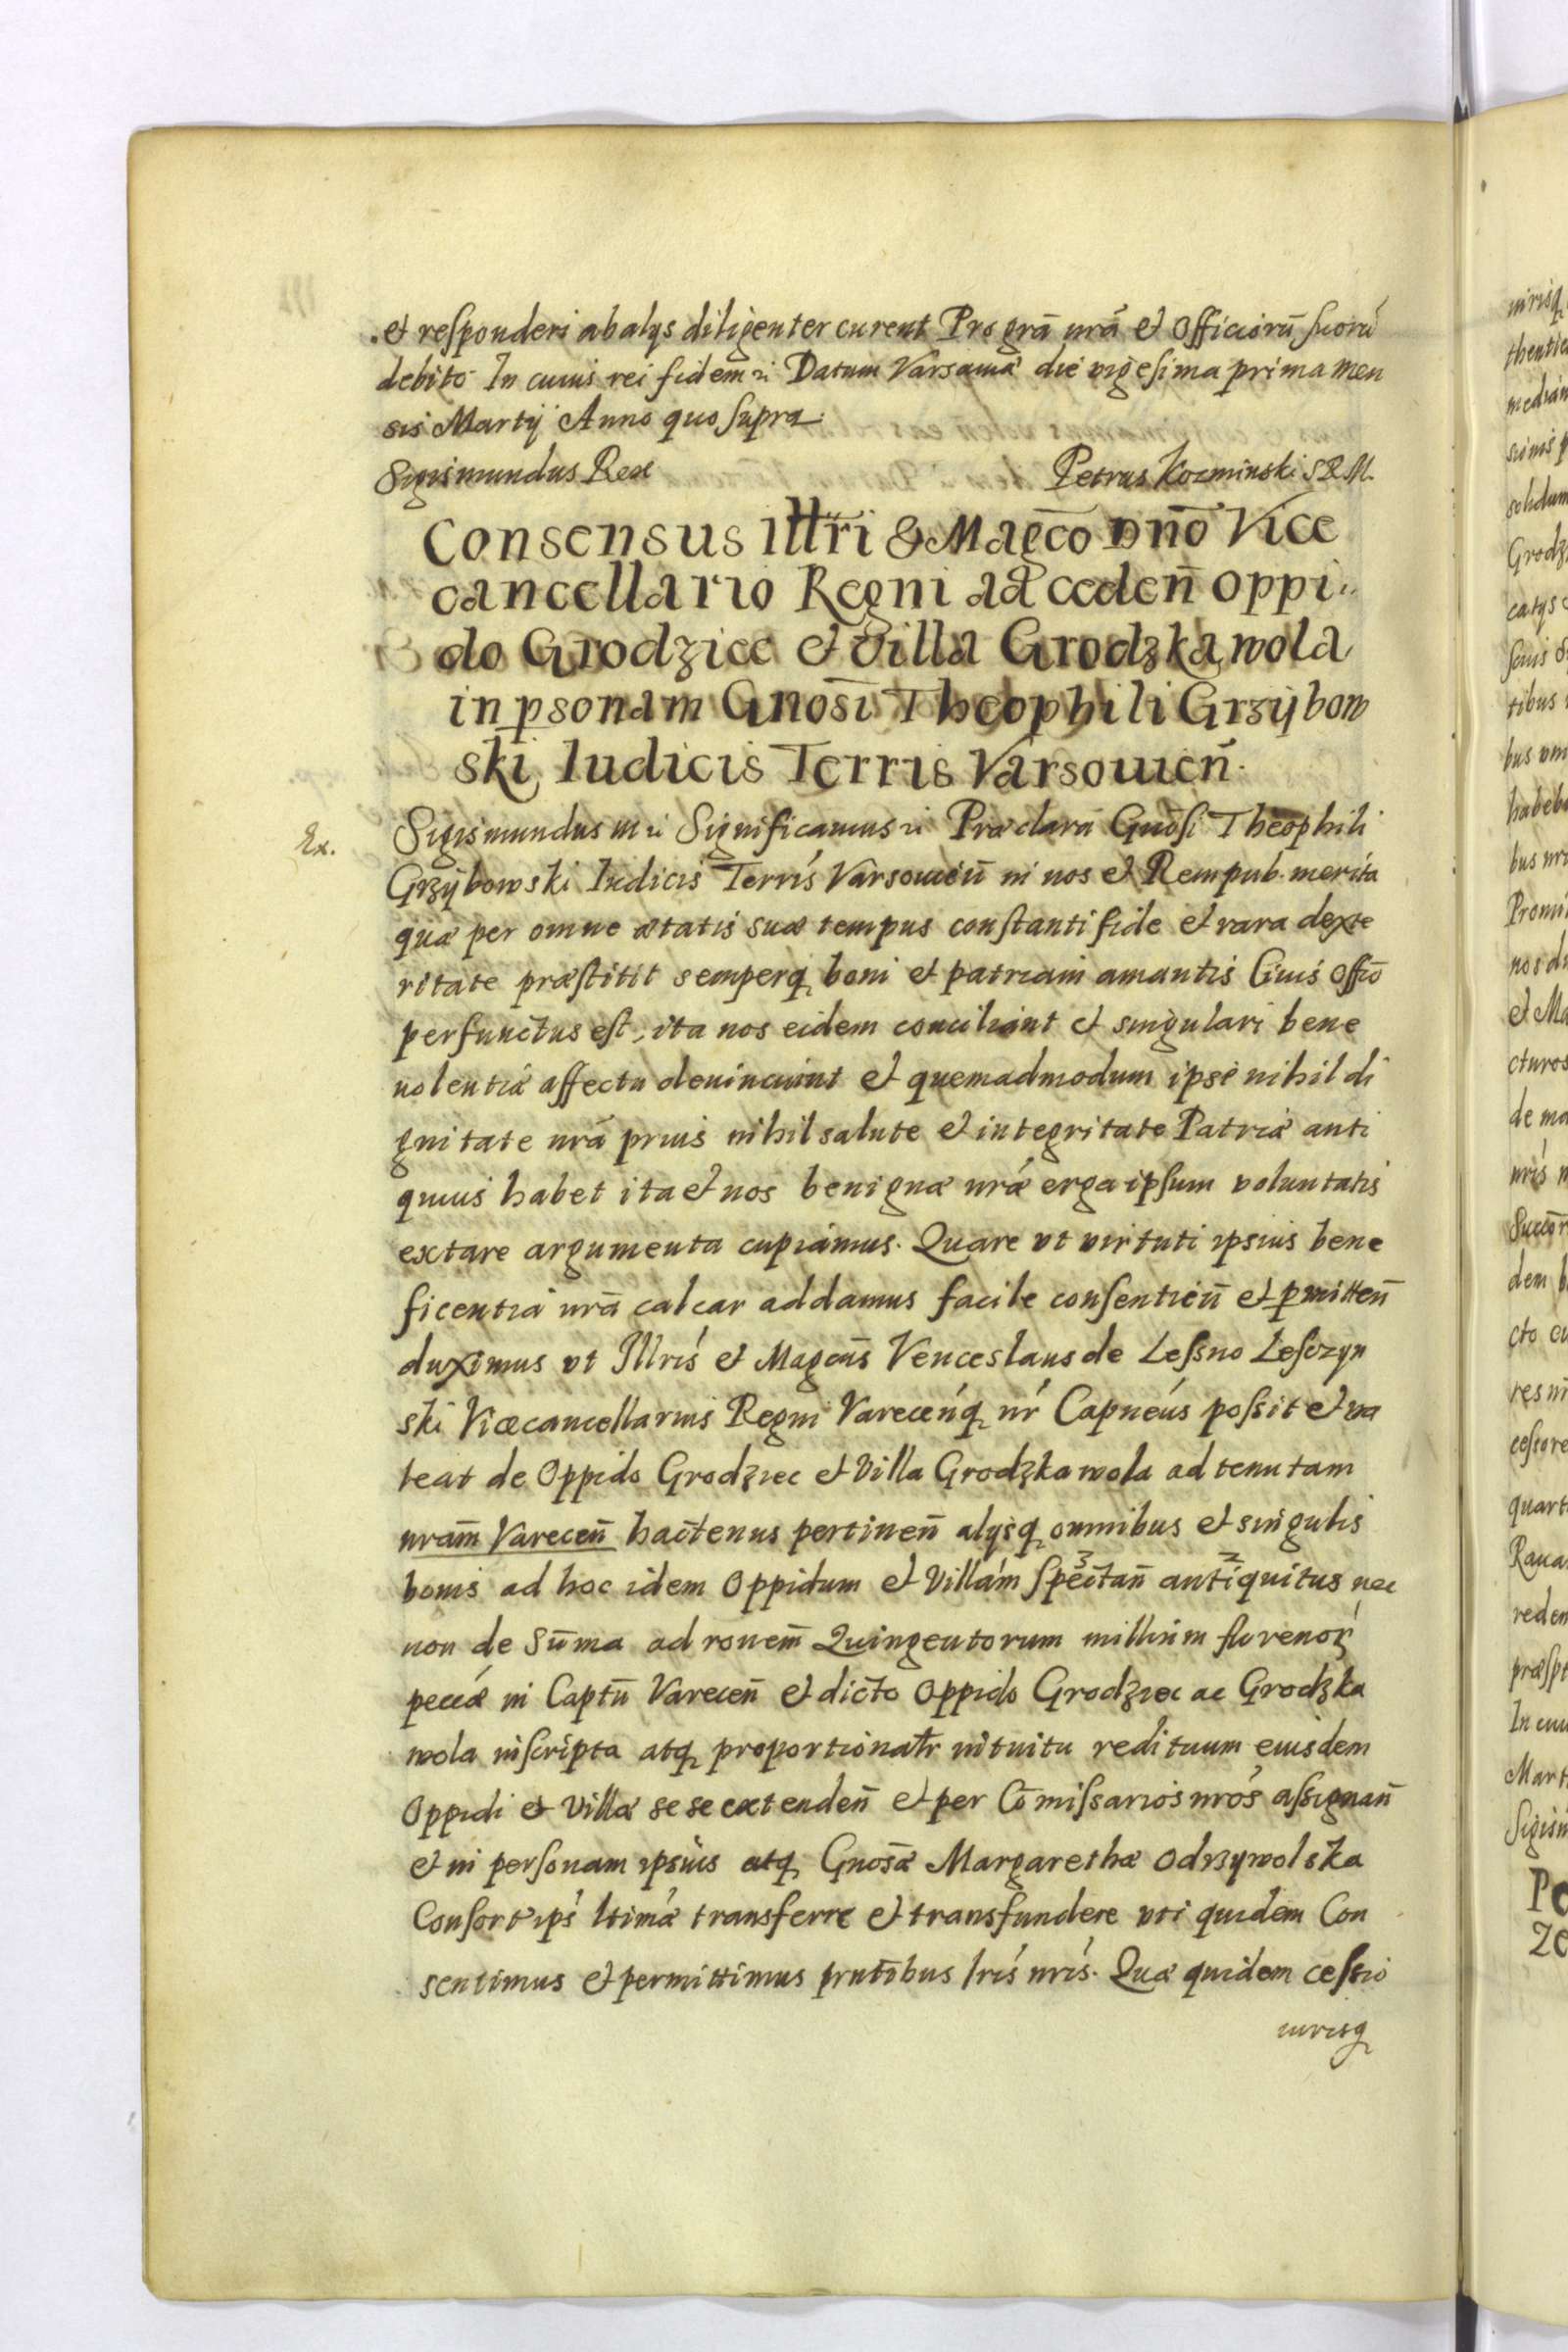 et responderi ab alijs diligenter curent Pro grā nrā et Officiorū suorū
debito. In cuius rei fidem Datum Varsauiæ die vigesima prima men
sis Martij Anno quo supra
Sigismundus Rex Petrus Kozminski S R M.
Consensus Illri & Magco Dno Vice
cancellario Regni ad cedeñ oppi„
do Grodziec et villa Grodzka wola
in psonam Gnosi Theophili Grzijbow
ski Iudicis Terris Varsouieñ.
Ex.
Sigismundus III Significamus Præclara Gnosi Theophili
Grzijbowski Iudicis Terris Varsouieñ in nos et Rempub. merita
quæ per omne ætatis suæ tempus constanti fide et rara dexte
ritate præstitit semperq boni et patriam amantis Ciuis Offio
perfunctus est, ita nos eidem conciliant et singulari bene
uolentiæ affectu deuinciunt et quemadmodum ipse nihil di
gnitate nrā prius nihil salute et integritate Patriæ anti
quius habet ita et nos benignæ nræ erga ipsum voluntatis
extare argumenta cupiamus. Quare vt virtuti ipsius bene
ficentia nrā calcar addamus facile consentieñ et pmitteñ
duximus vt Illris et Magcus Venceslaus de Lessno Lesczyn
ski Vicecancellarius Regni Varecenq nr Capneus possit et va
leat de Oppido Grodziec et Villa Grodzka wola ad tenutam
nram̄ Vareceñ hactenus pertineñ alijsq omnibus et singulis
bonis ad hoc idem Oppidum et Villam spectañ antiquitus nec
non de Sūma ad ronem̄ Quingentorum millium florenor
pecce in Captū Vareceñ et dicto Oppido Grodziec ac Grodzka
wola inscripta atq proportionatr intuitu redituum eiusdem
Oppidi et Villæ se se extendeñ et per Cōmissarios nros assignañ
et in personam ipsius atq Gnosæ Margarethæ Odrzywolska
Consort ips ltimæ transferre et transfundere vti quidem Con
sentimus et permittimus pntibus lris nris. Quæ quidem cessio
iurisq